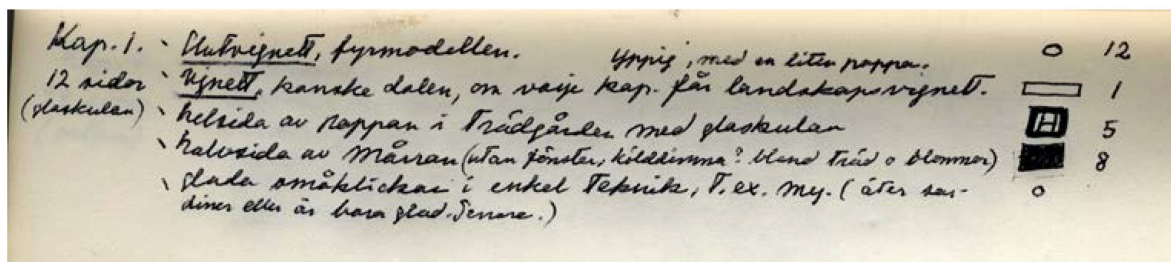 Kap. 1. Slutvignett, fyrmodellen. 12
yppig, med en liten pappa.
12 sidor vignett, kanske dalen, om varje kap. får landskapsvignett. 1
(glaskulan) helsida av pappan i trädgården med glaskulan H 5
halvsida av Mårran (utan fönster, köldimma? bland träd o blommor) 8
glada småklickar i enkel teknik, t.ex. My. (äter sar-
diner eller är bara glad. Senare.)